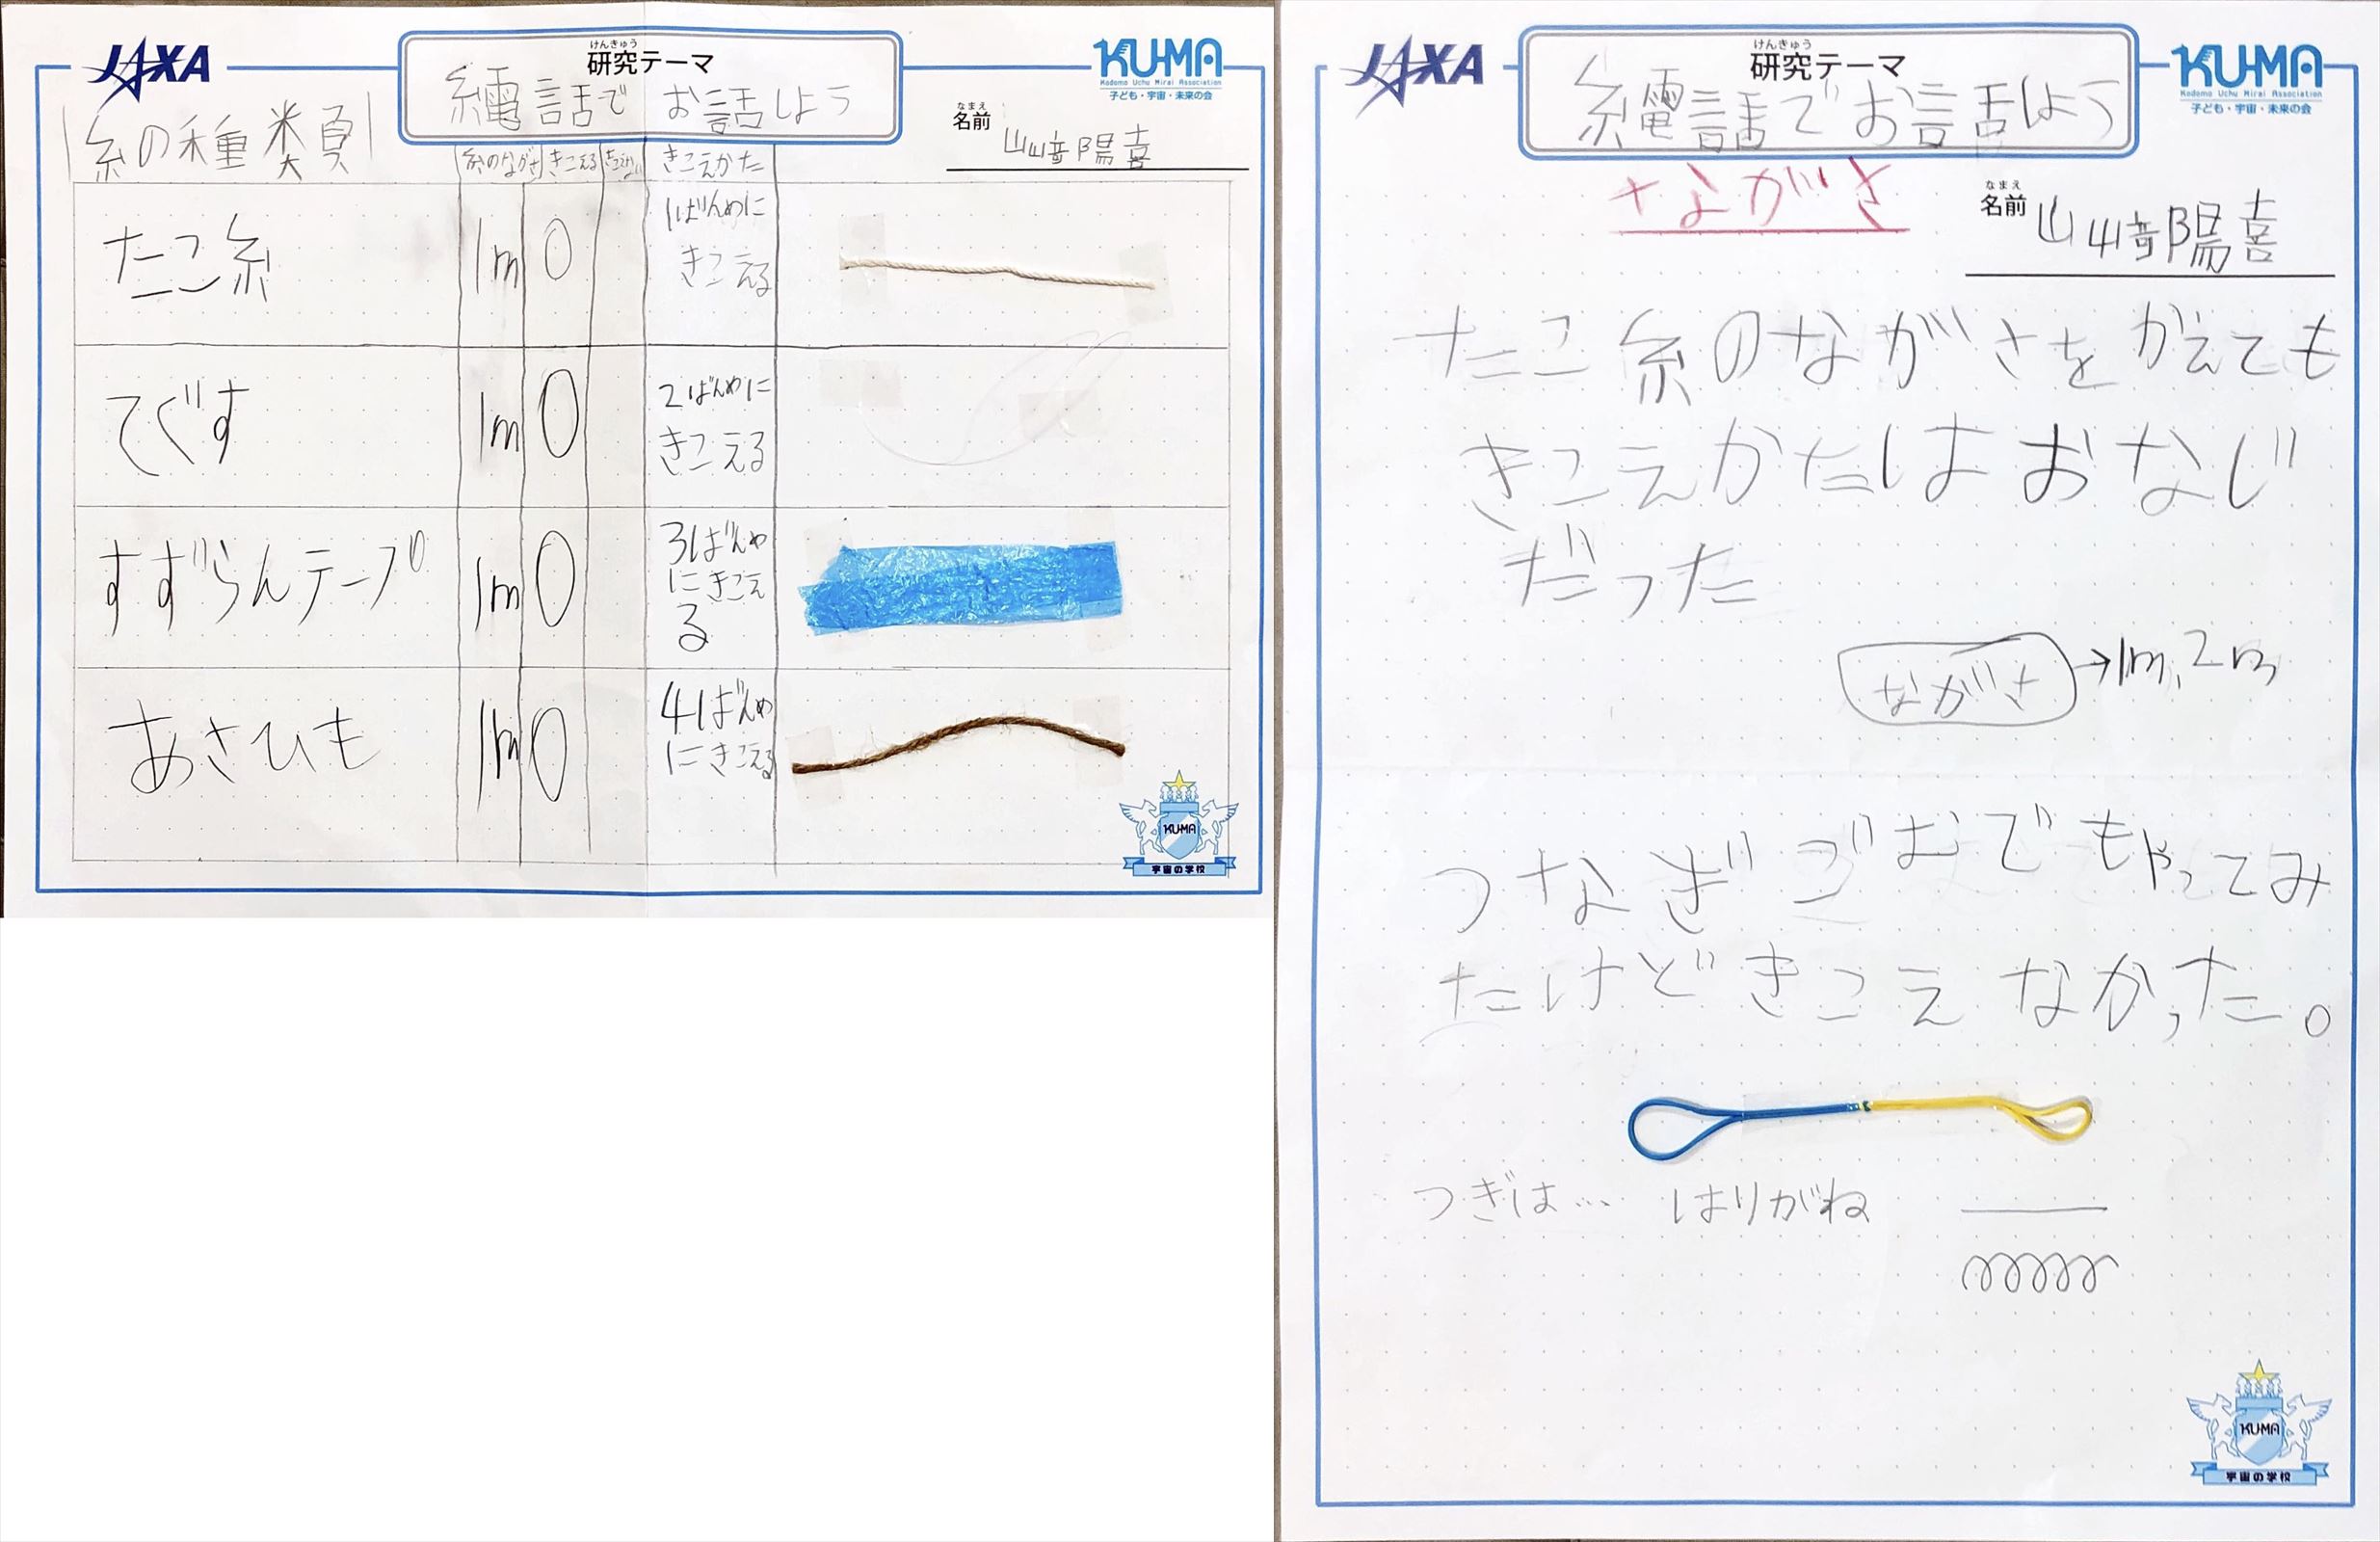 JAXA
けんきゅう
研究テーマ
糸電話で お話しよう
KU-MA
Kodomo Uchu Mirai Association
子ども・宇宙・未来の会
なまえ
名前
山﨑陽喜
糸の種類
糸のながさ きこえる きこえない きこえかた
たこ糸 1m 〇 1ばんめに
きこえる
てぐす 1m 〇 2ばんめに
きこえる
すずらんテープ 1m 〇 3ばんめ
にきこえ
る
あさひも 1m 〇 4ばんめ
にきこえる
KU-MA
宇宙の学校
JAXA
けんきゅう
研究テーマ
糸電話でお話しよう
KU-MA
Kodomo Uchu Mirai Association
子ども・宇宙・未来の会
+ながさ
なまえ
名前
山﨑陽喜
たこ糸のながさをかえても
きこえかたはおなじ
だった
ながさ→1m、2m
つなぎごむでもやってみ
たけどきこえなかった。
つぎは… はりがね
KU-MA
宇宙の学校